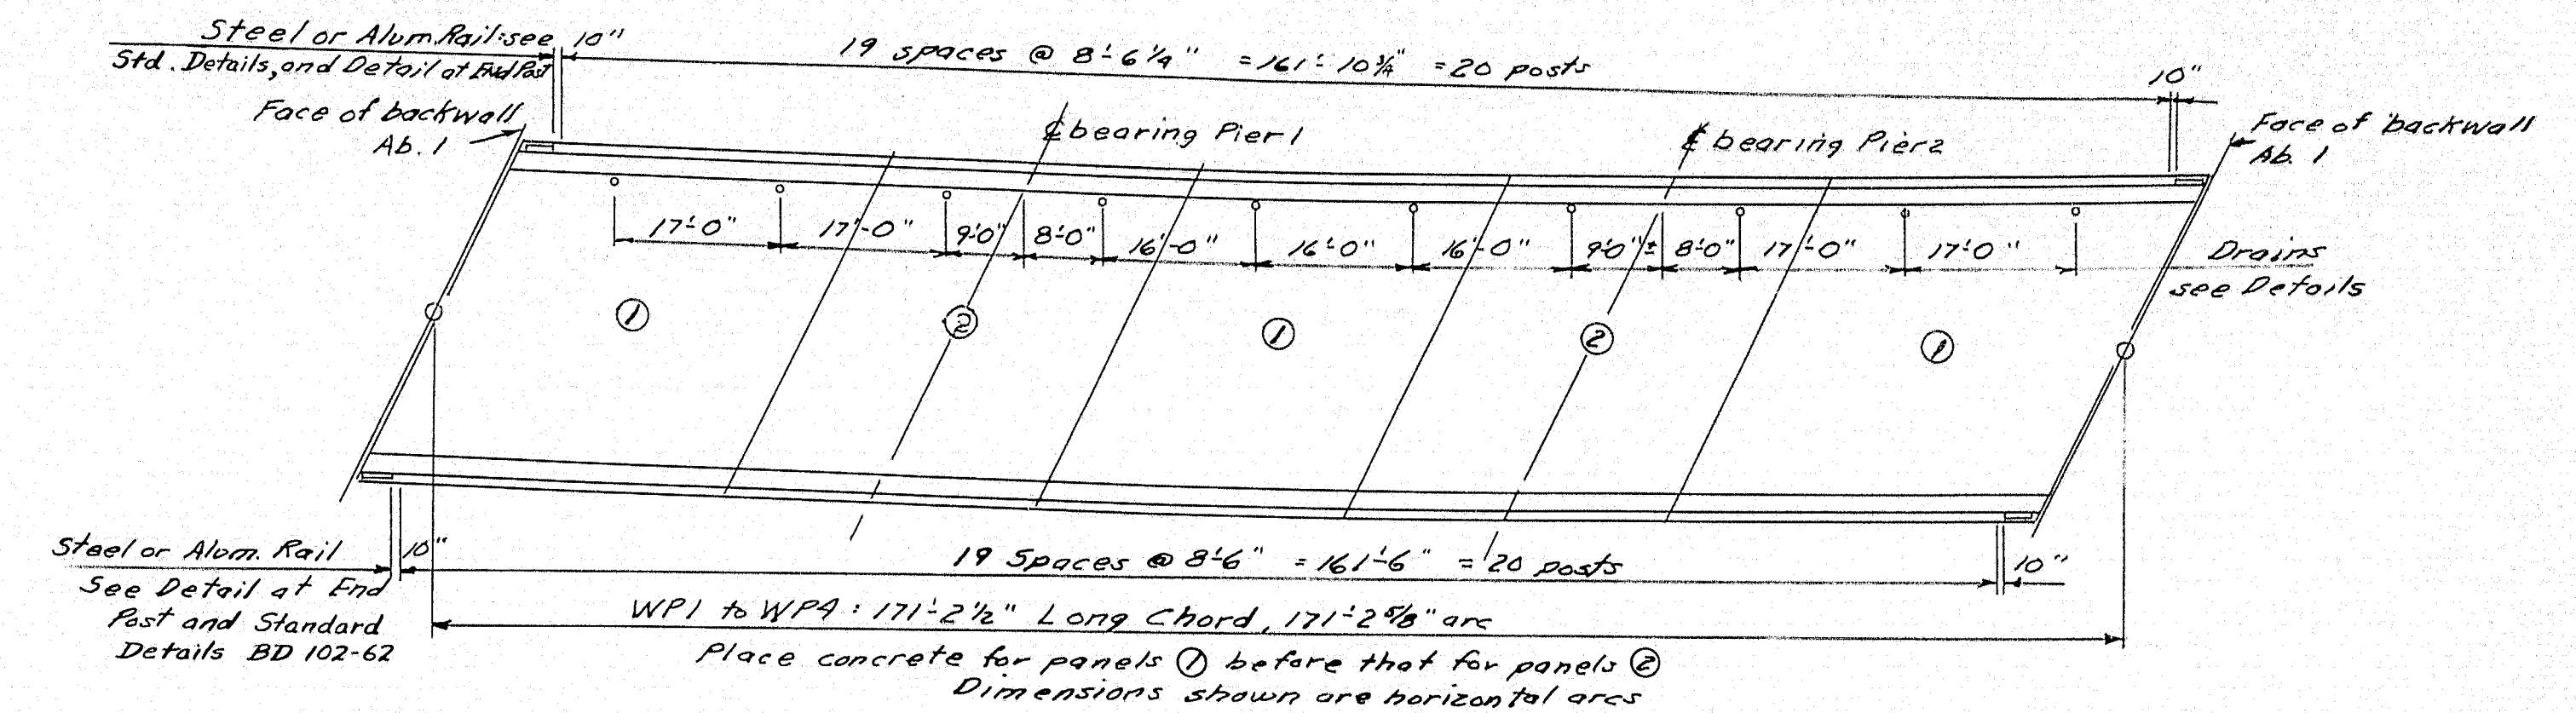 Steel or Alum. Rail: see
Std. Details, and Detail at End Post
10"
19 spaces @ 8'-6 1/4" = 161'-10 3/4" = 20 posts
10"
Face of backwall
Ab. 1
℄ bearing Pier 1
℄ bearing Pier 2
Face of backwall
Ab. 1
17'-0" 17'-0" 9'-0" 8'-0" 16'-0" 16'-0" 16'-0" 9'-0"± 8'-0" 17'-0" 17'-0"
Drains
see Details
① ② ① ② ①
Steel or Alum. Rail
See Detail at End
Post and Standard
Details BD 102-62
10"
19 Spaces @ 8'-6" = 161'-6" = 20 posts
10"
WP1 to WP4: 171'-2 1/2" Long Chord, 171'-2 5/8" arc
Place concrete for panels ① before that for panels ②
Dimensions shown are horizontal arcs